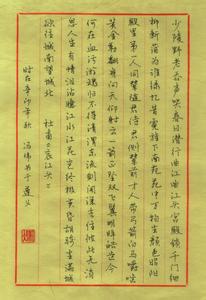 少陵野老吞聲哭春日潛行曲江曲江頭宮殿鎖千門細
柳新蒲為誰綠憶昔霓旌下南苑苑中萬物生顏色昭陽
殿里第一人同輦隨君侍君側輦前才人帶弓箭白馬嚼嚙
黃金勒翻身向天仰射雲一箭正墜雙飛翼明眸皓齒今
何在血污游魂歸不得清渭東流劍閣深去住彼此無消
息人生有情淚沾臆江水江花豈終極黃昏胡騎塵滿城
欲往城南望城北 杜甫之哀江頭
時在辛卯年秋 書於